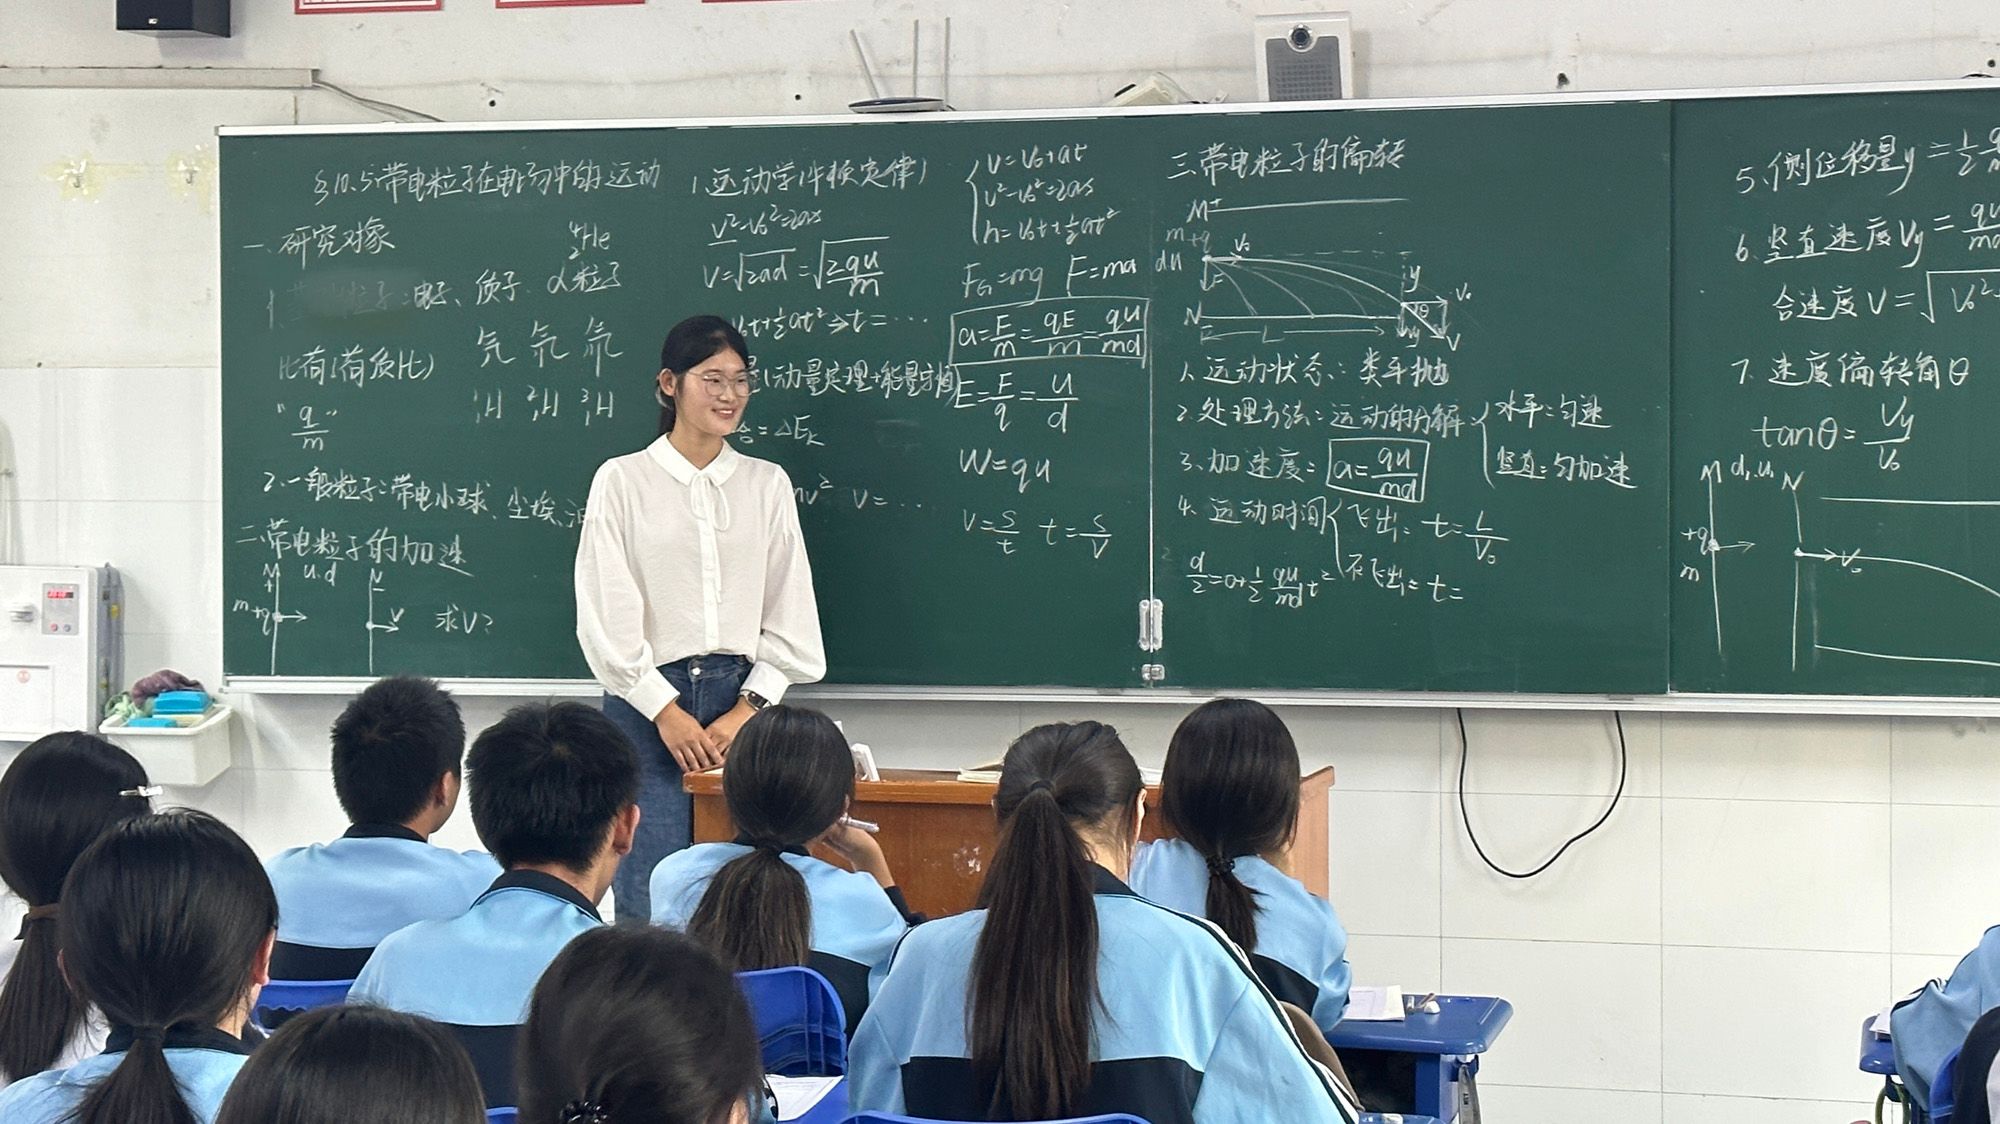 §10.5.带电粒子在电场中的运动
一.研究对象
⁴₂He
电子、质子、α粒子
氕 氘 氚
比荷(荷质比)
¹₁H ²₁H ³₁H
"q/m"
2.一般粒子:带电小球、尘埃、
二.带电粒子的加速
M u.d N
+ -
m +q v 求V?
1.运动学(牛顿定律)
v²-v₀²=2as
v=√2ad=√(2qu/m)
v₀t+½at²⇒t=…
(动量定理+能量守恒)
合=ΔEₖ
mv² v=…
v=v₀+at
v²-v₀²=2as
h=v₀t+½at²
F_G=mg F=ma
a=F/m=qE/m=qu/md
E=F/q=u/d
W=qu
v=s/t t=s/v
三.带电粒子的偏转
M+
m +q v₀
du F y v₀
N L θ
vy v
1.运动状态:类平抛
2.处理方法:运动的分解:
水平:匀速
竖直:匀加速
3.加速度:a=qu/md
4.运动时间
飞出:t=L/v₀
不飞出:t=
d/2=0+½ qu/md t²
5.侧位移量y=½
6.竖直速度Vy=qu/md
合速度V=√v₀²
7.速度偏转角θ
tanθ=Vy/v₀
M d,u, N
+q v₀
m